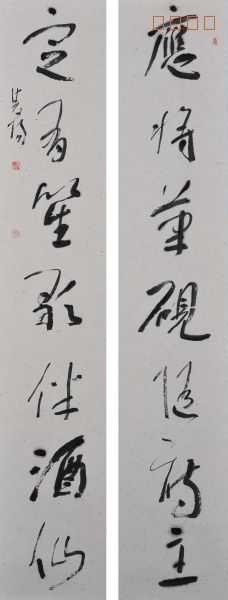 應將筆硯隨詩主
定有笙歌伴酒仙